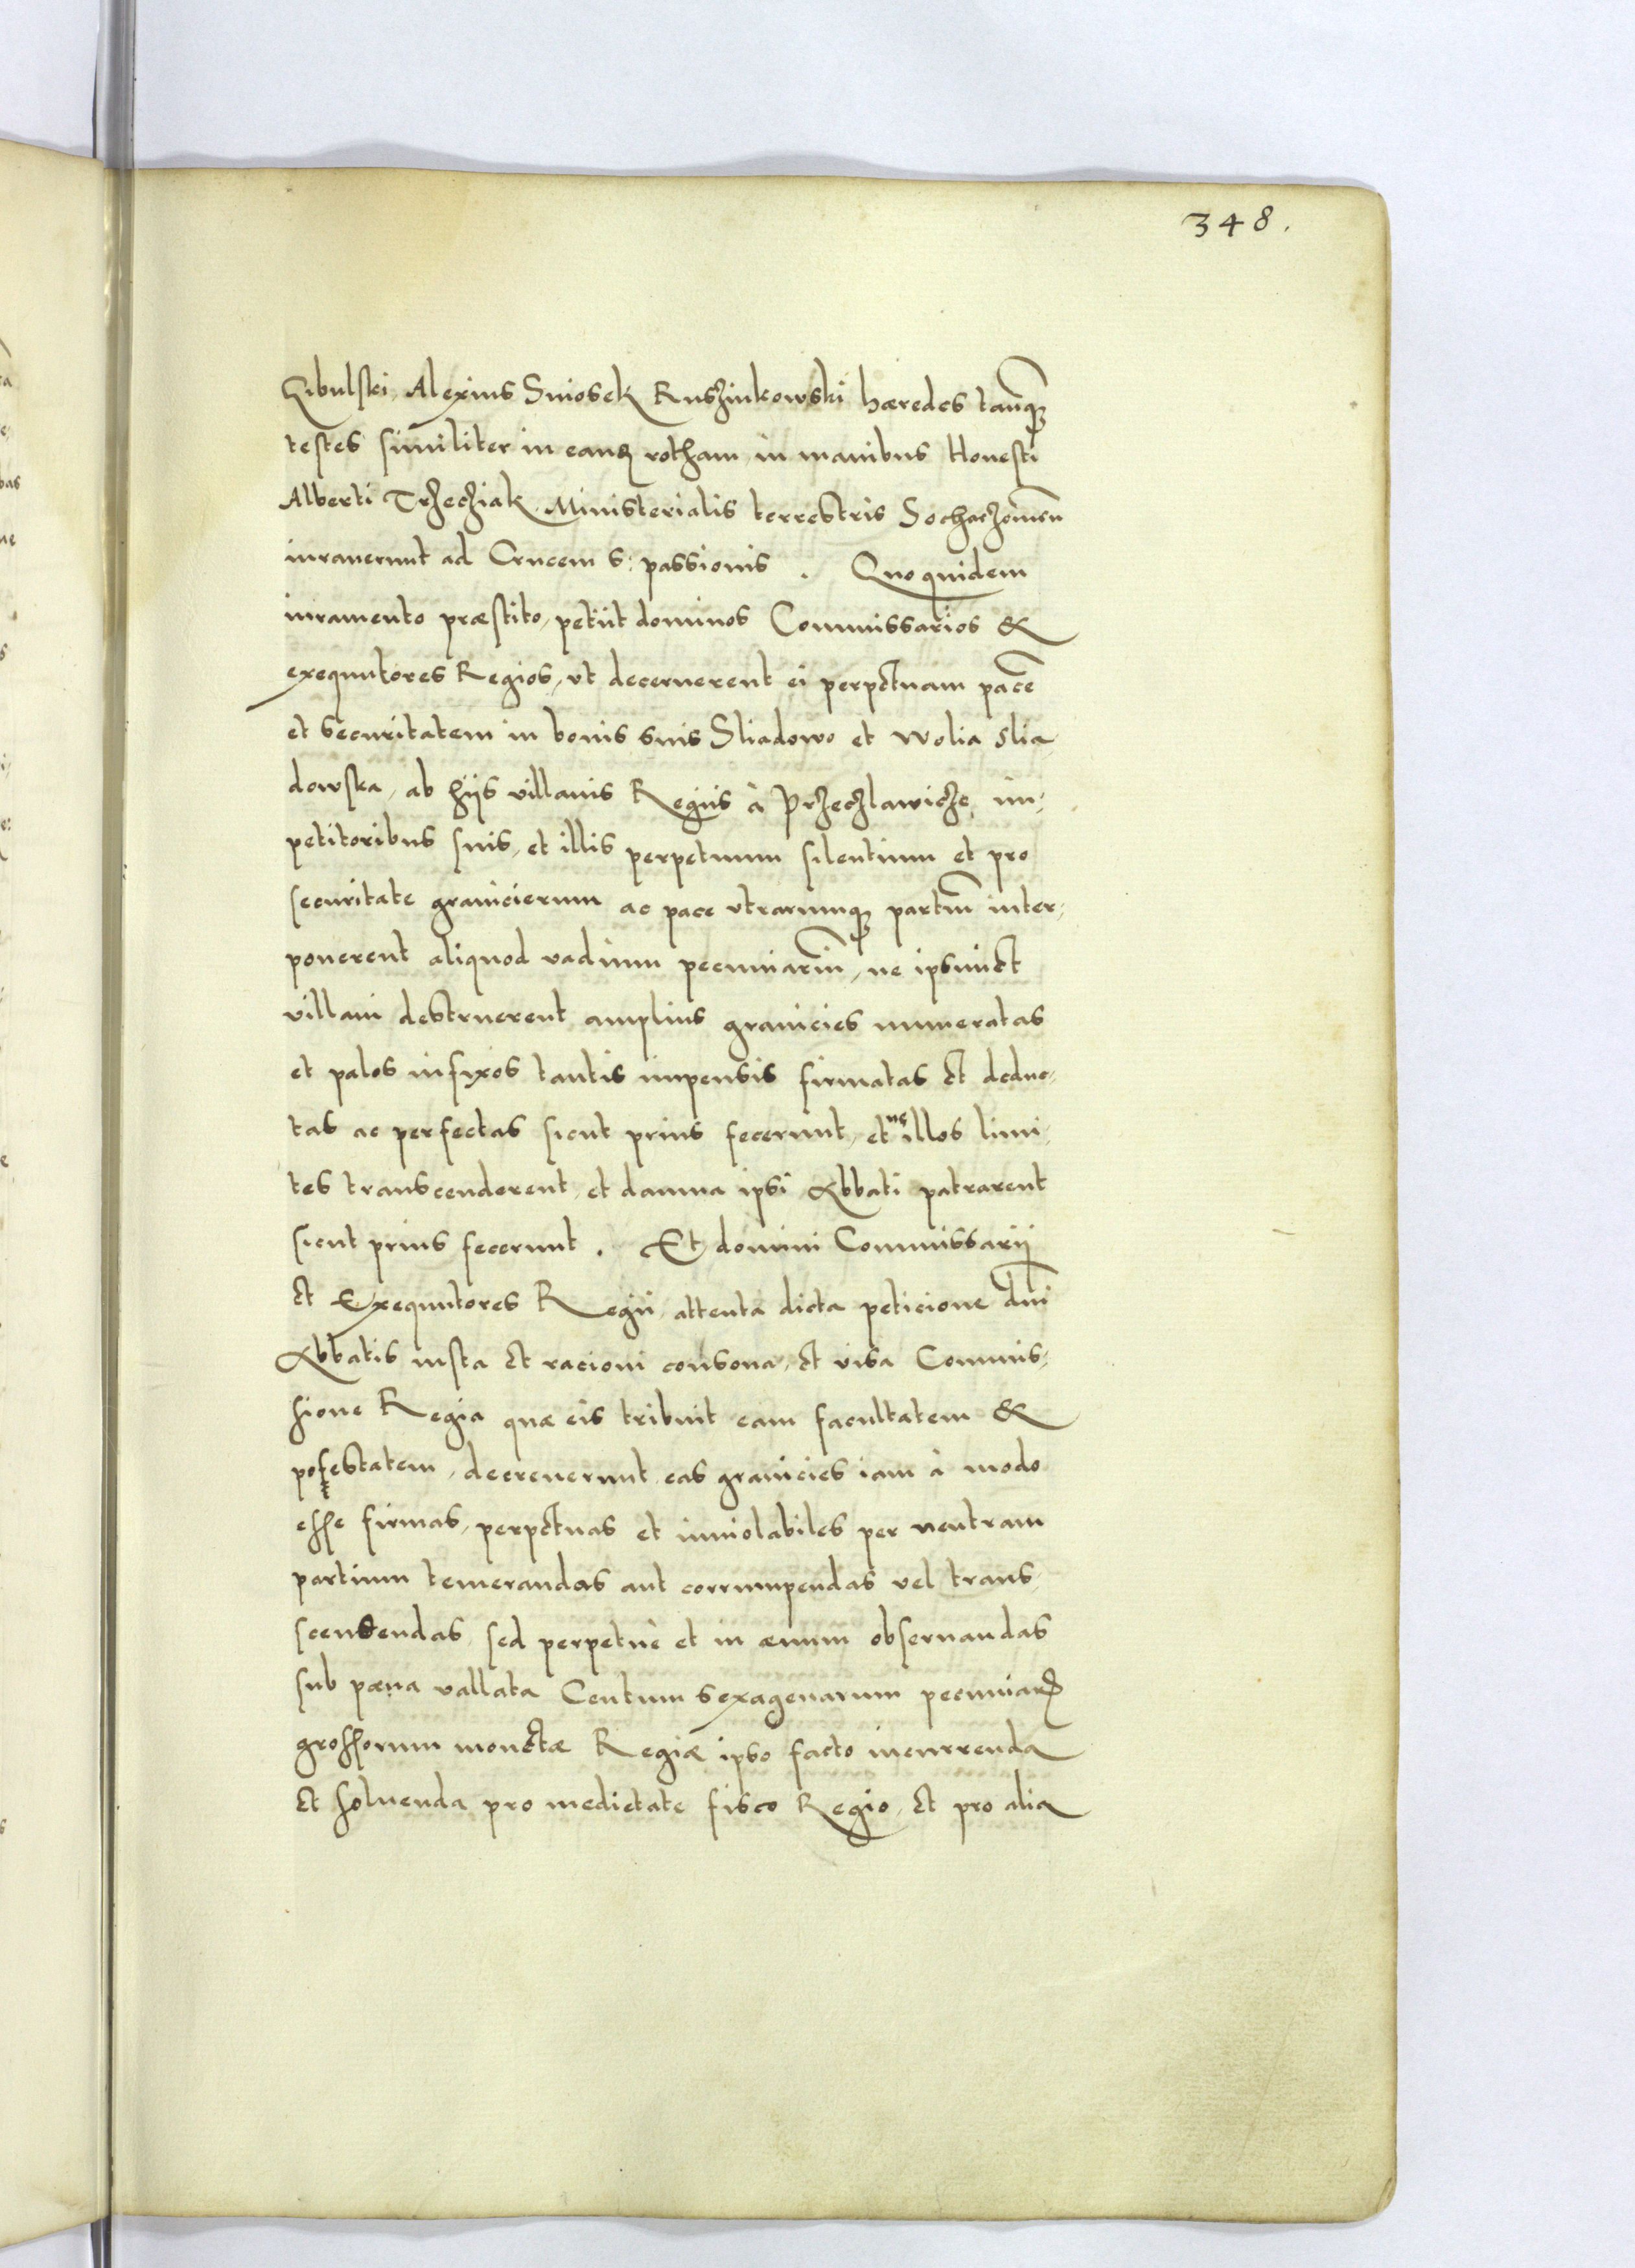 348.
Cibulski, Alexius Sniosek Ruszinkowski hæredes tanq;
testes similiter in eanđ rotham in manibus Honesti
Alberti Trzecziak Ministerialis terrestris Sochaczowień
iurauerunt ad Crucem s: passionis . Quo quidem
iuramento præstito, petiit dominos Commissarios &
exequutores Regios, vt decernerent ei perpetuam pacē
et securitatem in bonis suis Sliadowo et Wolia Slia
dowska, ab hijs villanis Regiis à Przeczlawicze, im-
petitoribus suis, et illis perpetuum silentium et pro
securitate granicierum ac pace vtrarumq; partiū inter-
ponerent aliquod vadium pecuniariū, ne ipsimet
villani destruerent amplius granicies numeratas
et palos infixos tantis impensis firmatas et deduc-
tas ac perfectas sicut prius fecerunt, et ne illos limi-
tes transcenderent, et damna ipsi Abbati patrarent
sicut prius fecerunt . Et domini Commissarij
et Exequutores Regii, attenta dicta peticione dn̄i
Abbatis iusta et racioni consona, et visa Commis-
sione Regia quæ eis tribuit eam facultatem &
potestatem, decreuerunt eas granicies iam à modo
esse firmas, perpetuas et inuiolabiles per neutram
partium temerandas aut corrumpendas vel trans-
scendendas, sed perpetuè et in æuum obseruandas
sub pæna vallata Centum sexagenarum pecuniarꝝ
grossorum monetæ Regiæ ipso facto incurrenda
et soluenda pro medietate fisco Regio, et pro alia